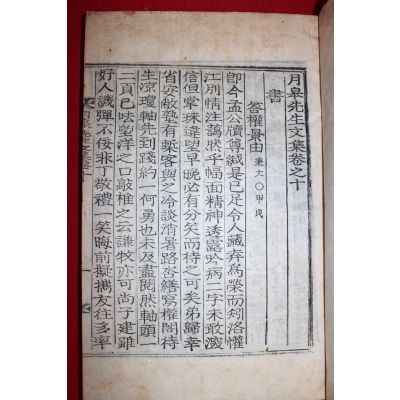 月皐先生文集卷之十
書
答權景由 秉太○甲戌
卽今孟公牘尊緘是已足令人藏弆爲榮而矧洛權
江別情注藹然乎幅面精神透露吟病二字未敢深
信但掌珠違望早晩必有分笑而待之可矣弟歸幸
省安敝塾有乘客與之冷談消暑路沓繕寫權閣待
生凉瓊軸先到踐約一何勇也未及盡閱然軸頭一
二頁已呿望洋之口敲椎之云謙牧亦可尙子建雖
好人譏彈不佞非丁敬禮一笑晦前擬攜友往多率